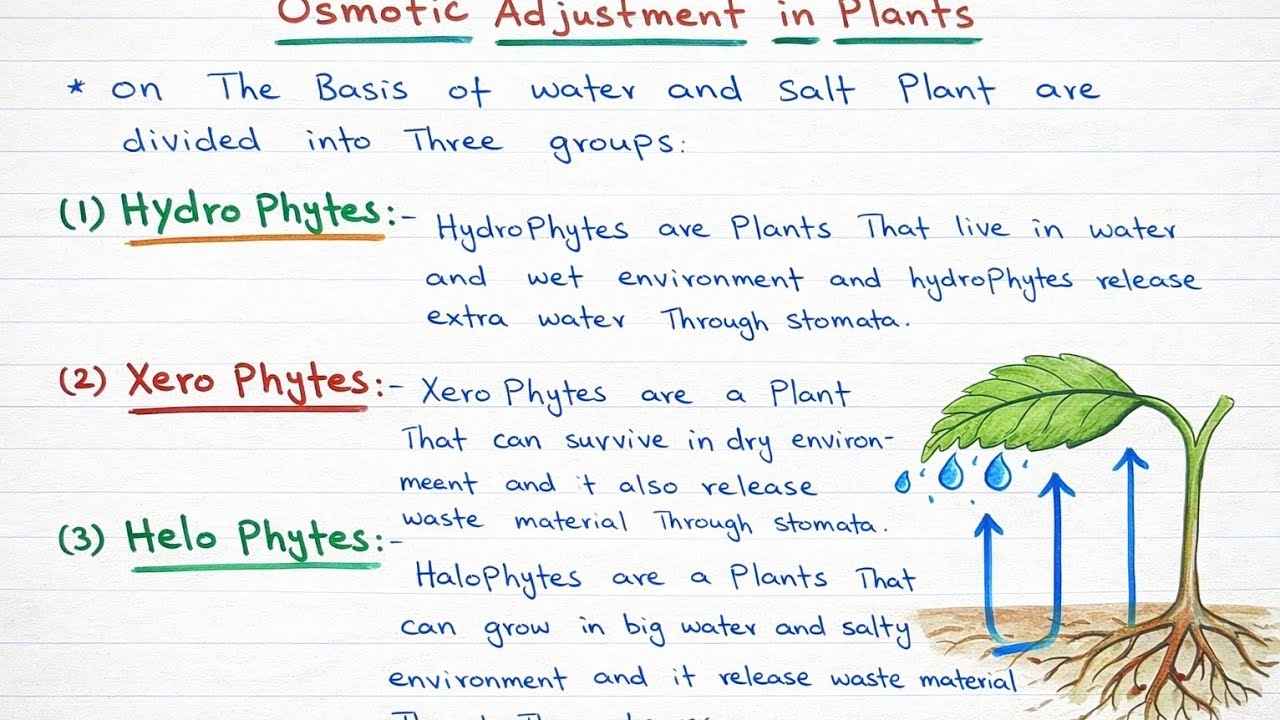 Osmotic Adjustment in Plants
* on The Basis of water and Salt Plant are
divided into Three groups:
(1) Hydro Phytes:- HydroPhytes are Plants That live in water
and wet environment and hydroPhytes release
extra water Through stomata.
(2) Xero Phytes:- Xero Phytes are a Plant
That can survive in dry environ-
meent and it also release
waste material Through stomata.
(3) Helo Phytes:-
HaloPhytes are a Plants That
can grow in big water and salty
environment and it release waste material